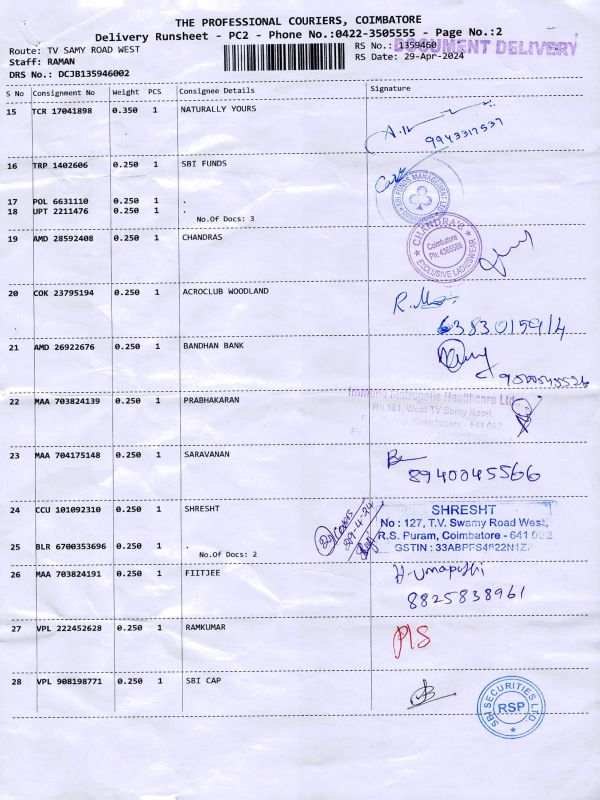 THE PROFESSIONAL COURIERS, COIMBATORE
Delivery Runsheet - PC2 - Phone No.:0422-3505555 - Page No.:2
Route: TV SAMY ROAD WEST
RS No.: 1359460
DOCUMENT DELIVERY
Staff: RAMAN
RS Date: 29-Apr-2024
DRS No.: DCJB135946002
S No Consignment No Weight PCS Consignee Details Signature
15 TCR 17041898 0.350 1 NATURALLY YOURS
9943317537
16 TRP 1402606 0.250 1 SBI FUNDS
SBI FUNDS MANAGEMENT LTD
17 POL 6631110 0.250 1 .
18 UPT 2211476 0.250 1 .
No.Of Docs: 3
19 AMD 28592408 0.250 1 CHANDRAS
CHANDRA'S
Coimbatore
EXCLUSIVE LADIESWEAR
20 COK 23795194 0.250 1 ACROCLUB WOODLAND
21 AMD 26922676 0.250 1 BANDHAN BANK
22 MAA 703824139 0.250 1 PRABHAKARAN
Metropolis Healthcare Ltd
No 161, West TV Samy Road,
Puram, Coimbatore - 641 002
23 MAA 704175148 0.250 1 SARAVANAN
8940045566
24 CCU 101092310 0.250 1 SHRESHT
SHRESHT
No : 127, T.V. Swamy Road West,
R.S. Puram, Coimbatore - 641 002
GSTIN :
25 BLR 6700353696 0.250 1 .
No.Of Docs: 2
26 MAA 703824191 0.250 1 FIITJEE
8825838961
27 VPL 222452628 0.250 1 RAMKUMAR
28 VPL 908198771 0.250 1 SBI CAP
SBI SECURITIES LTD
RSP